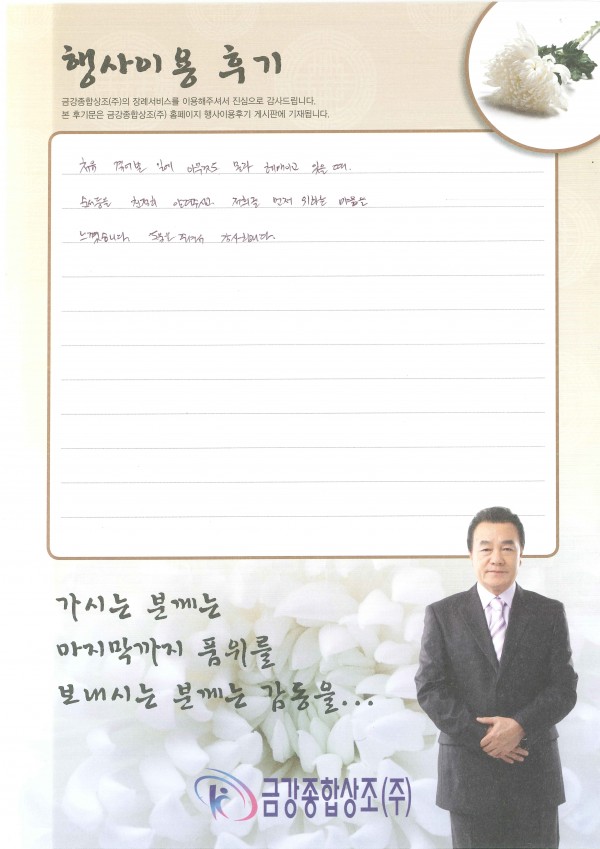 행사이용 후기
금강종합상조(주)의 장례서비스를 이용해주셔서 진심으로 감사드립니다.
본 후기문은 금강종합상조(주) 홈페이지 행사이용후기 게시판에 기재됩니다.
처음 겪어본 일에 아무것도 몰라 헤매이고 있을 때.
친절히 안내해주시고. 저희를 먼저 위하는 마음을
느꼈습니다. 도움을 주셔서 감사합니다.
가시는 분께는
마지막까지 품위를
보내시는 분께는 감동을...
금강종합상조(주)